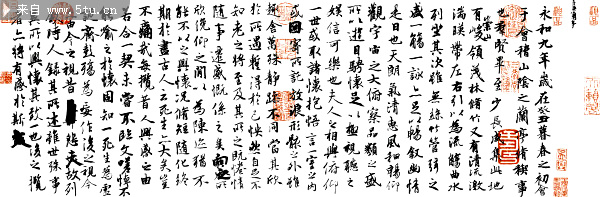 图行天下 PHOTOPHOTO.CN
永和九年歲在癸丑暮春之初會
于會稽山陰之蘭亭脩稧事
也群賢畢至少長咸集此地
有崇山峻領茂林脩竹又有清流激
湍暎帶左右引以為流觴曲水
列坐其次雖無絲竹管弦之
盛一觴一詠亦足以暢敘幽情
是日也天朗氣清惠風和暢仰
觀宇宙之大俯察品類之盛
所以遊目騁懷足以極視聽之
娛信可樂也夫人之相與俯仰
一世或取諸懷抱悟言一室之內
或因寄所託放浪形骸之外雖
趣舍萬殊靜躁不同當其欣
於所遇暫得於己怏然自足不
知老之將至及其所之既惓情
隨事遷感慨係之矣向之所
欣俛仰之間以為陳迹猶不
能不以之興懷況脩短隨化終
期於盡古人云死生亦大矣豈
不痛哉每攬昔人興感之由
若合一契未嘗不臨文嗟悼不
能喻之於懷固知一死生為虛
誕齊彭殤為妄作後之視今
亦由今之視昔悲夫故列
敘時人錄其所述雖世殊事
異所以興懷其致一也後之攬
者亦將有感於斯文